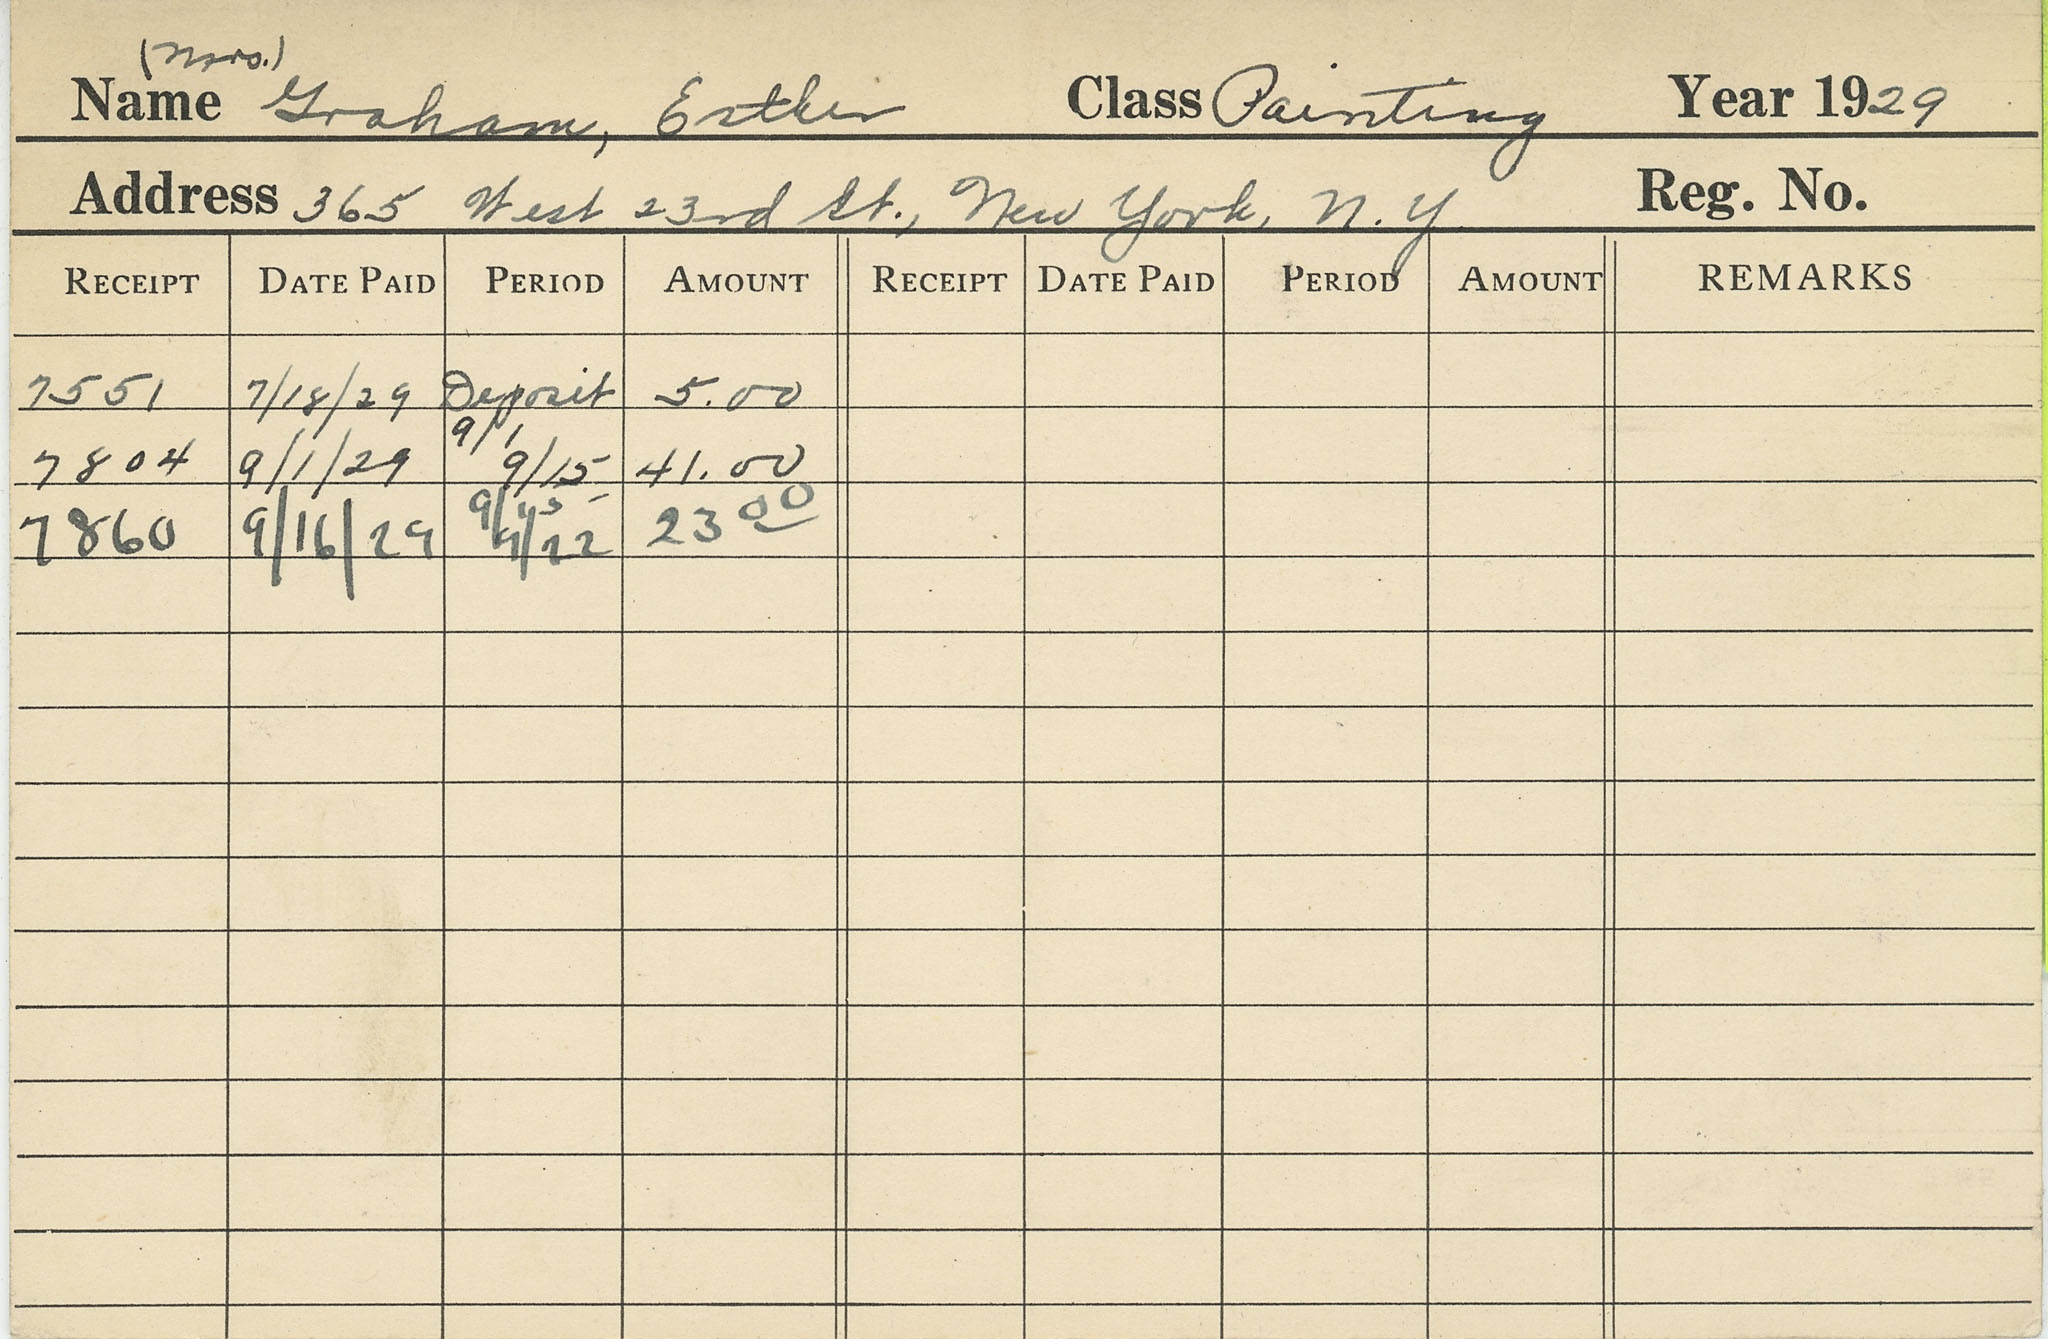 (Mrs.)
Name Graham, Esther Class Painting Year 1929
Address 365 West 23rd St., New York, N.Y. Reg. No.
RECEIPT DATE PAID PERIOD AMOUNT RECEIPT DATE PAID PERIOD AMOUNT REMARKS
7551 7/18/29 Deposit 5.00
9/1
7804 9/1/29 9/15 41.00
9/15-
7860 9/16/29 9/22 23.00